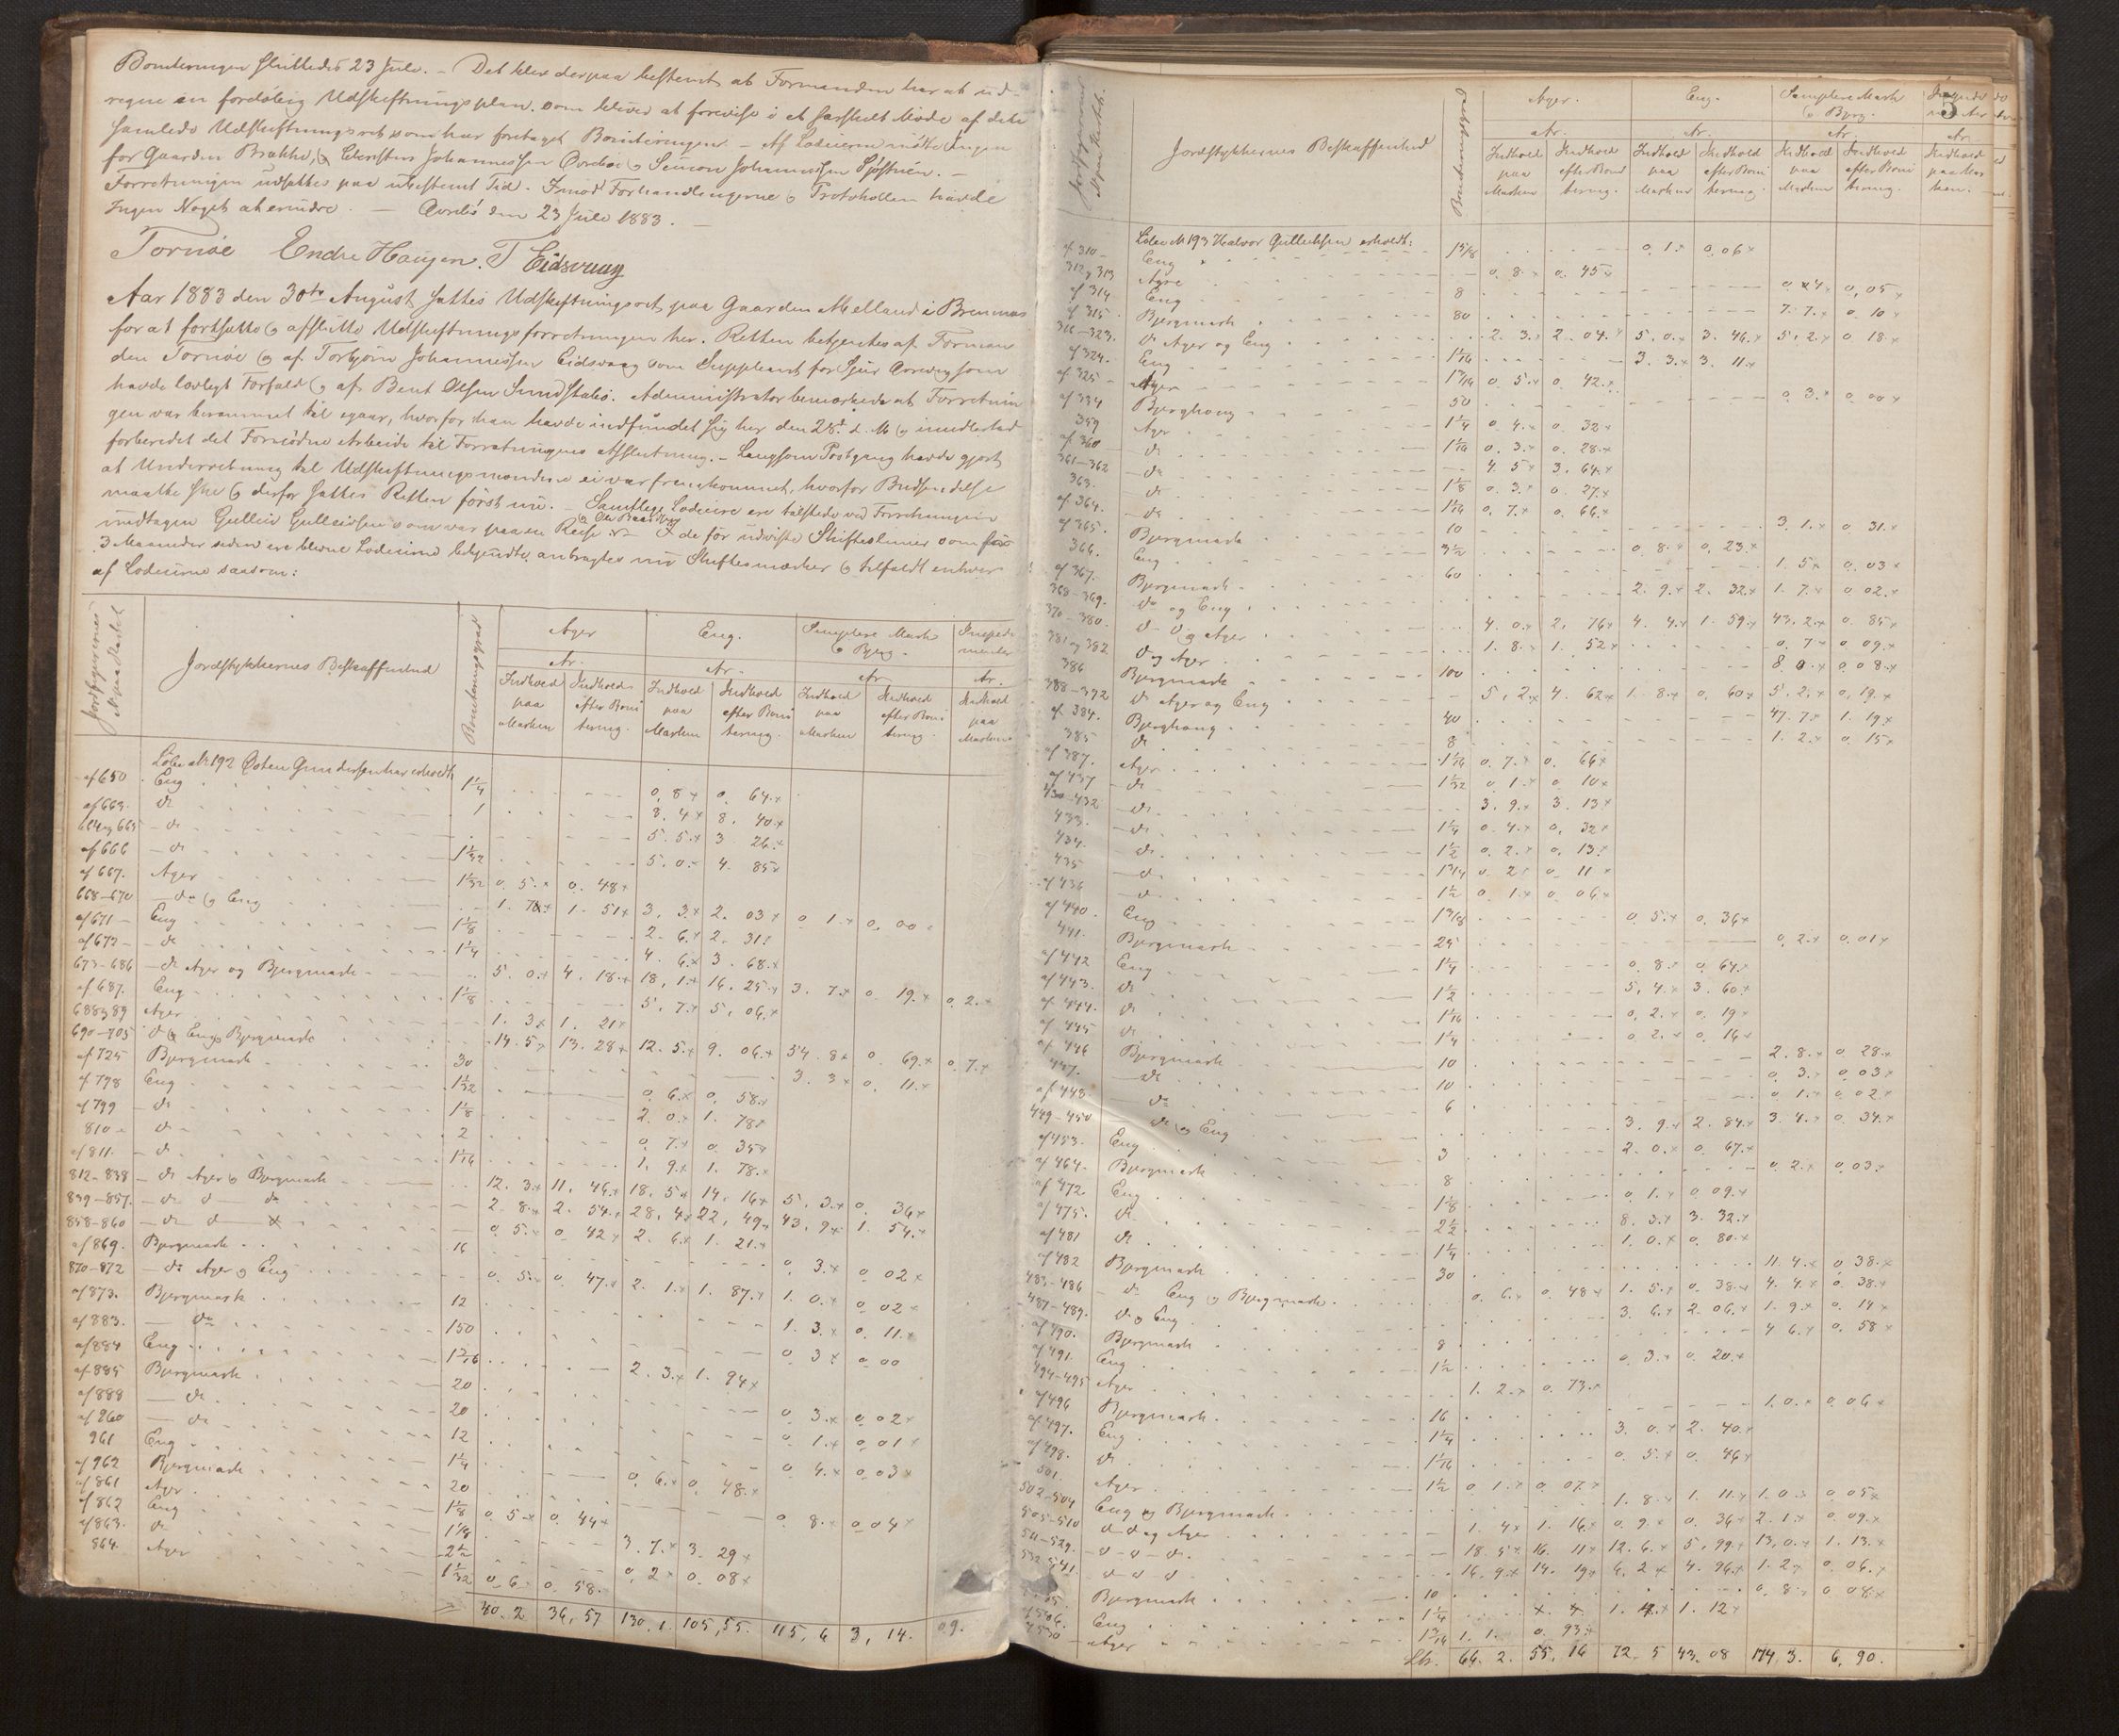 Boniteringen sluttedes 23 Juli. – Det blev derpaa bestemt at Formanden har at ud-
regne en foreløbig Udskiftningsplan, som bliver at forevise i et særskilt Møde af dette
samlede Udskiftningsret som har foretaget Boniteringen – Af Lodeierne mødte Ingen
for Gaarden Brække, Johannessen Simon Johannessen
Forretningen udsættes paa ubestemt Tid. Imod Forhandlingerne & Protokollen havde
Ingen Noget at erindre. – den 23 Juli 1883. –
Tornöe Endre Haugen. T Eidsvaag
Aar 1883 den 30te August sattes Udskiftningsret paa Gaarden Melland i Bremnes
for at fortsætte & afslutte Udskiftningsforretningen her. Retten betjentes af Forman
den Tornöe & af Torbjørn Johannessen Eidsvaag som Suppleant for Sjur som
havde lovligt Forfald & af Bent Olsen Administrator bemærkede at Forretnin
gen var berammet til igaar, hvorfor han havde indfundet sig her den 28d d. M & imidlertid
forberedet det Fornødne Arbeide til Forretningens Afslutning. – Langsom Postgang havde gjort
at Underretning til Udskiftningsmændene ei var fremkommet, hvorfor Budsendelse
maatte ske & derfor sattes Retten først nu. – Samtlige Lodeiere ere tilstede ved Forretningen
undtagen Gulleik Gulleiksen som var paa en Reise de før udviste Skifteslinier som for
3 Maaneder siden ere blevne Lodeierne bekjendte, anbragtes nu Skiftesmærker & tilfaldt enhver
af Lodeierne saasom:
Jordstykkernes Beskaffenhed Boniteringsgrad Ager Eng. Simplere Mark & Bjerg.
Ar. Ar. Ar. Ar.
Indhold paa Marken Indhold efter Boni tering. Indhold paa Marken Indhold efter Boni tering. Indhold paa Marken Indhold efter Boni tering. Indhold paa Marken
Løbe No 192 Østen Gundersen har erholdt
af 650 Eng 1 1/4 0. 8 0. 64.
af 663. do 1 8. 4 8. 40.
664 & 665 – do 5. 5. 3 26.
af 666 – do 1 1/32 5. 0. 4. 85
af 667. Ager 1 1/32 0. 5. 0. 48
668–670 – do & Eng 1. 7 1. 51 3. 3. 2. 03 0. 1. 0. 00
af 671 – Eng 1 1/8 2. 6. 2. 31
af 672 – do 1 1/4 4. 6. 3. 68.
673–686 – do Ager og Bjergmark 5. 0. 4. 18. 18, 1. 16. 25 3. 7. 0. 19. 0. 2.
af 687. Eng 1 1/8 5. 7. 5. 06.
688 & 89 Ager 1. 3 1. 21
690–705 do & Eng & Bjergmark 14. 5. 13. 28 12. 5. 9. 06. 54. 8. 0. 69. 0. 7.
af 725 Bjergmark 30 3. 3 0. 11.
af 798 Eng 1 1/32 0. 6. 0. 58.
af 799 – do 1 1/8 2. 0. 1. 78
810 – do 2 0. 7. 0. 35
af 811. – do 1 1/16 1. 9. 1. 78.
812–838 – do Ager & Bjergmark 12. 3. 11. 46. 18. 5 14. 16 5. 3. 0. 36
839–857. – do d do 2. 8. 2. 54. 28. 4. 22, 49. 43. 9. 1. 54.
858–860 – do d 0. 5. 0. 42 2. 6. 1. 21.
af 869. Bjergmark 16 0. 3. 0. 02
870–872 – do Ager & Eng 0. 5. 0. 47. 2. 1. 1. 87. 1. 0. 0. 02
af 873. Bjergmark 12 1. 3. 0. 11.
af 883. – do 150 0. 3 0. 00
af 884 Eng 1 3/16 2. 3. 1. 94
af 885 Bjergmark 20 0. 3. 0. 02
af 888 – do 20 0. 1. 0. 01
af 960 – do 12 0. 4. 0. 03
961 Eng 1 1/4 0. 6. 0. 48.
af 962 Bjergmark 20 0. 8. 0. 04
af 861 Ager 1 1/8 0. 5. 0. 44
af 862 Eng 3. 7. 3. 29
af 863. do 2 1/2 0. 2 0. 08
864. Ager 1 1/32 0. 6. 0. 58.
40. 2 36, 57 130. 1. 105, 55. 115, 6 3, 14. 0 9.
5
Jordstykkernes Beskaffenhed Boniteringsgrad Ager. Eng. Simplere Mark & Bjerg.
Ar. Ar. Ar. Ar.
Indhold paa Marken Indhold efter Boni tering. Indhold paa Marken Indhold efter Boni tering. Indhold paa Marken Indhold efter Boni tering. Indhold paa Mar ken.
Løbe No 193 Halvor Gulleiksen erholdt:
af 310 – Eng 0. 1. 0,06
312 & 313 Agre 0. 8. 0. 45
af 314 Eng 8 0. 4. 0, 05
af 315 Bjergmark 80 7. 7. 0. 10
316–323. do Ager og Eng 2. 3. 2. 04. 5. 0. 3. 46. 5. 2. 0 18.
af 324. Eng 1 1/16 3. 3. 3. 11.
af 325 – Ager 0. 5. 0. 42.
af 334 Bjerghaug 50 0. 3. 0. 00
359 Ager 1 1/4 0. 4. 0. 32
af 360 do 1 1/16 0. 3. 0. 28.
361–362 – do 4. 5 3. 64.
363. do 1 1/8 0. 3. 0. 27.
af 364. – do 1 1/16 0. 7. 0. 66.
af 365. Bjergmark 10 3. 1. 0. 31.
366. Eng 3 1/2 0. 8. 0. 23.
af 367. Bjergmark 60 1. 5. 0. 03
368–369. do og Eng 2. 9. 2. 32. 1. 7. 0. 02.
370–380. d– d & Ager 4. 0. 2. 76 4. 4. 1. 59. 43. 2. 0. 85
381 & 382 d og Ager 1. 8. 1. 52 0. 7 0 09.
386 Bjergmark 100 8 0. 0. 08.
388–392 do Ager og Eng 5. 2. 4. 62. 1. 8. 0. 60 5. 2. 0. 19.
af 384. Bjerghaug 40 47. 7. 1. 19.
385 do 8 1. 2. 0. 15
af 387. Ager 1 1/16 0. 7. 0. 66
af 437 – do 1 1/32 0. 1. 0. 10
430–432 – do 3. 9. 3. 13
433. – do 1 1/4 0. 4. 0. 32
434. do 1 1/2 0. 2. 0. 13
435 – do 0. 2 0. 11
af 436 – do 1 1/2 0. 1. 0. 06
af 440. Eng 0. 5. 0. 36
441. Bjergmark 25 0. 2. 0. 01
af 442 Eng 1 1/4 0. 8. 0. 64.
af 443. do 1 1/2 5. 4. 3. 60.
af 444. do 1 1/16 0. 2. 0. 19
af 445 do 1 1/4 0. 2. 0. 16
af 446 Bjergmark 10 2. 8. 0. 28.
447. – do 10 0. 3. 0. 03
af 448 – do 6 0. 1. 0. 02
449–450 do og Eng 3. 9. 2. 84. 3. 4. 0. 34.
af 453. Eng 3 2. 0. 0. 67.
af 464. Bjergmark 8 0. 2. 0. 03.
af 472 Eng 1 1/8 0. 1. 0. 09.
af 475. do 2 1/2 8. 3. 3. 32.
af 481 do 1 1/4 1. 0. 0. 80.
af 482 Bjergmark 30 11. 4. 0. 38.
483–486 – do Eng & Bjergmark 0. 6. 0. 48 1. 5. 0. 38. 4. 4. 0. 38.
487–489. do & Eng 3. 6. 2. 06. 1. 9. 0. 14
af 490. Bjergmark 8 4 6. 0. 58
af 491. Eng 1 1/2 0. 3. 0. 20.
494–495 Ager 1. 2. 0. 73.
af 496 Bjergmark 16 1. 0. 0. 06
af 497. Eng 1 1/4 3. 0. 2. 40.
af 498. do 1 1/16 0. 5. 0. 46
501. Ager 1 1/2 0. 1. 0. 07.
502–504 Eng & Bjergmark 1. 8. 1. 11. 1. 0. 0. 05
505–510 d–d og Ager 1. 4 1. 16. 0. 9. 0. 36 2. 1. 0. 09.
511–529. – d – d – do. 18. 5 16. 11 12. 6. 5, 99. 13, 0. 1. 13.
532–541. – d d d 16. 9. 14. 19 6. 2 4. 96. 1. 2 0. 06.
Bjergmark 10 0. 8. 0 08.
Eng 1 1/4 1. 4. 1. 12
af 530 – Ager 1. 1. 0. 93.
66. 2. 55, 16 72. 5 43. 08 174 3. 6, 90.